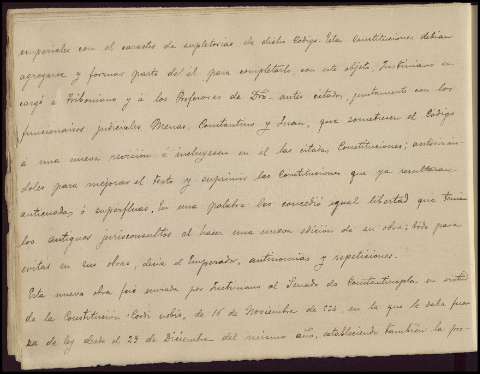 imperiales con el caracter de supletorias de dicho Código. Estas Constituciones debian
agregarse y formar parte de él para completarlo, con este objeto, Justiniano en-
cargó á Triboniano y á los Profesores de Dro. antes citados, juntamente con los
funcionarios judiciales Menas, Constantino y Juan, que sometiesen el Código
á una nueva revisión é incluyesen en él las citadas Constituciones; autorizán-
doles para mejorar el texto y suprimir las Constituciones que ya resultaran
anticuadas ó superfluas. En una palabra les concedió igual libertad que tenian
los antiguos jurisconsultos al hacer una nueva edición de su obra; todo para
evitar en sus obras, decia el Emperador, antinomias y repeticiones.
Esta nueva obra fué enviada por Justiniano al Senado de Constantinopla, en virtud
de la Constitución Cordi nobis, de 16 de Noviembre de 534 en la que le daba fuer-
za de ley desde el 29 de Diciembre del mismo año, estableciendo también la pro-